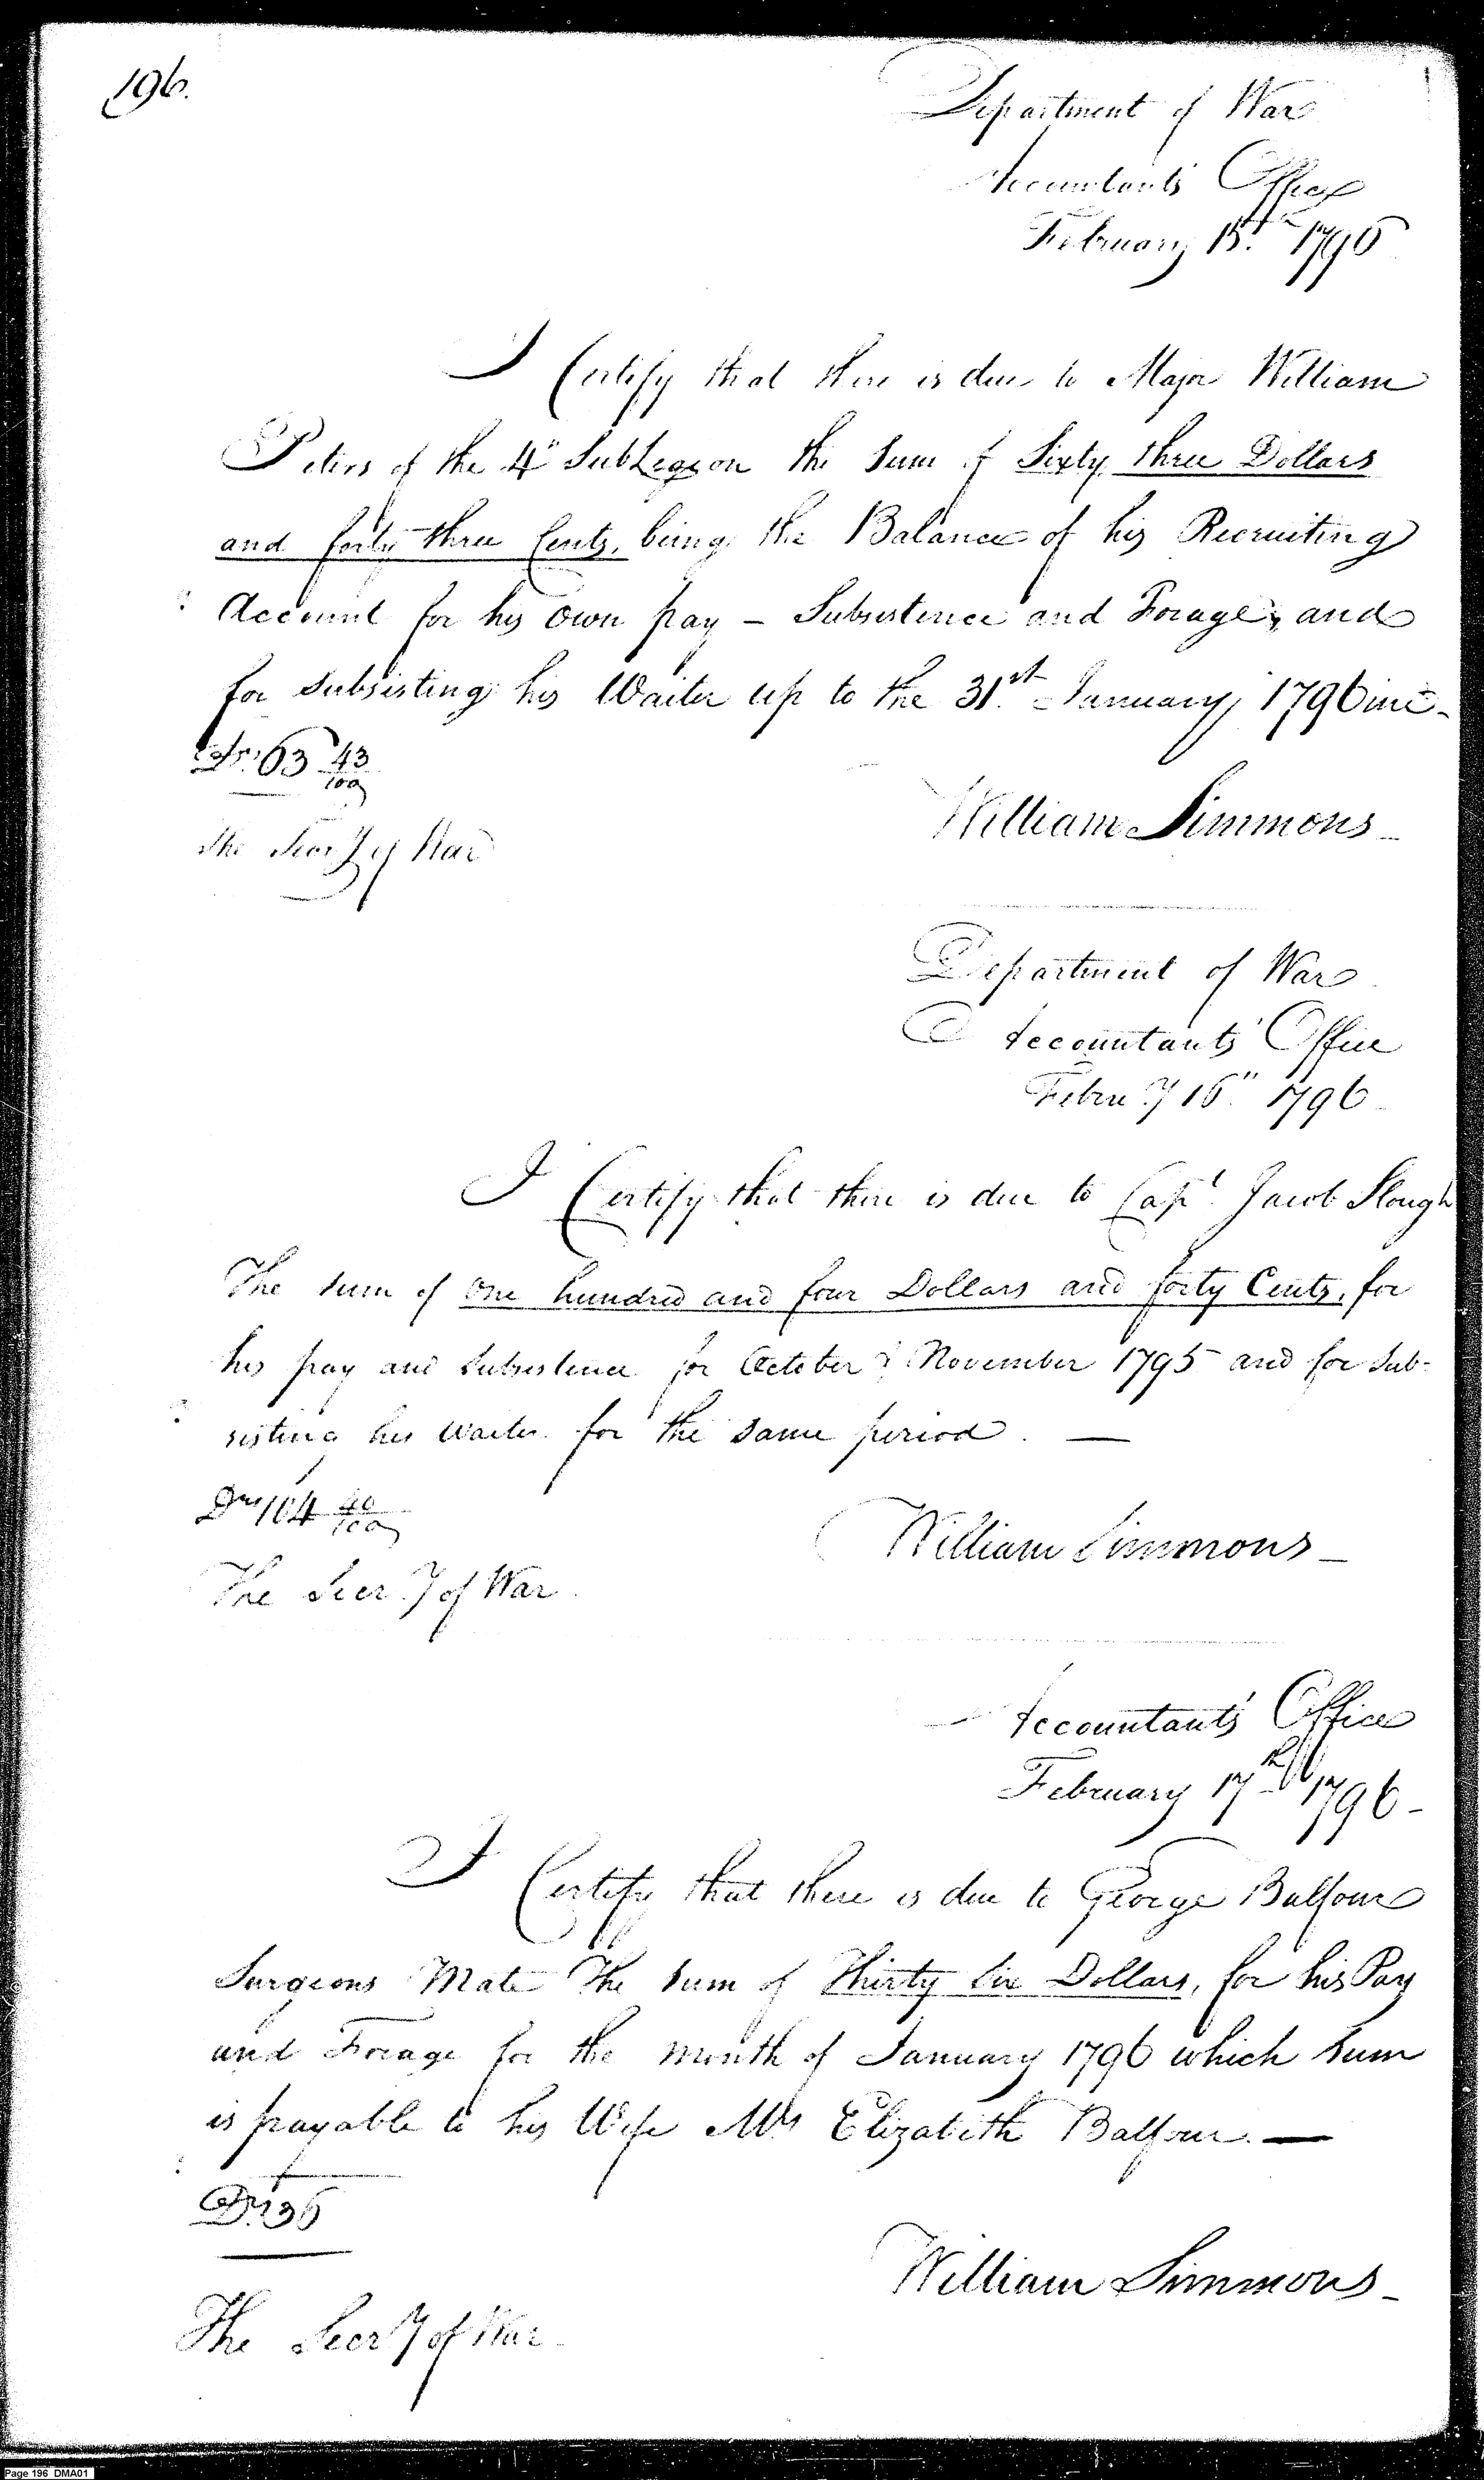 196.
Department of War
Accountants Office
February 15th 1796
I Certify that there is due to Major William
Peters of the 4" SubLegion the Sum of Sixty three Dollars
and forty three Cents, being the Balance of his Recruiting
Account for his own pay – Subsistence and Forage, and
for Subsisting his Waiter up to the 31st January 1796 inc-
Drs. 63 43/100
The Secr'y of War
William Simmons
Department of War
Accountants' Office
Febru'y 16" 1796
I Certify that there is due to Capt. Jacob Slough
The sum of one hundred and four Dollars and forty Cents, for
his pay and Subsistence for October & November 1795 and for Sub-
sisting his waiter for the same period. —
Drs 104 40/100
William Simmons
The Secr'y of War
Accountants' Office
February 17th 1796
I Certify that there is due to George Balfour
Surgeons Mate The Sum of Thirty Six Dollars, for his Pay
and Forage for the month of January 1796 which Sum
is payable to his Wife Mrs Elizabeth Balfour. —
Drs 36
William Simmons
The Secr'y of War
Page 196 DMA01